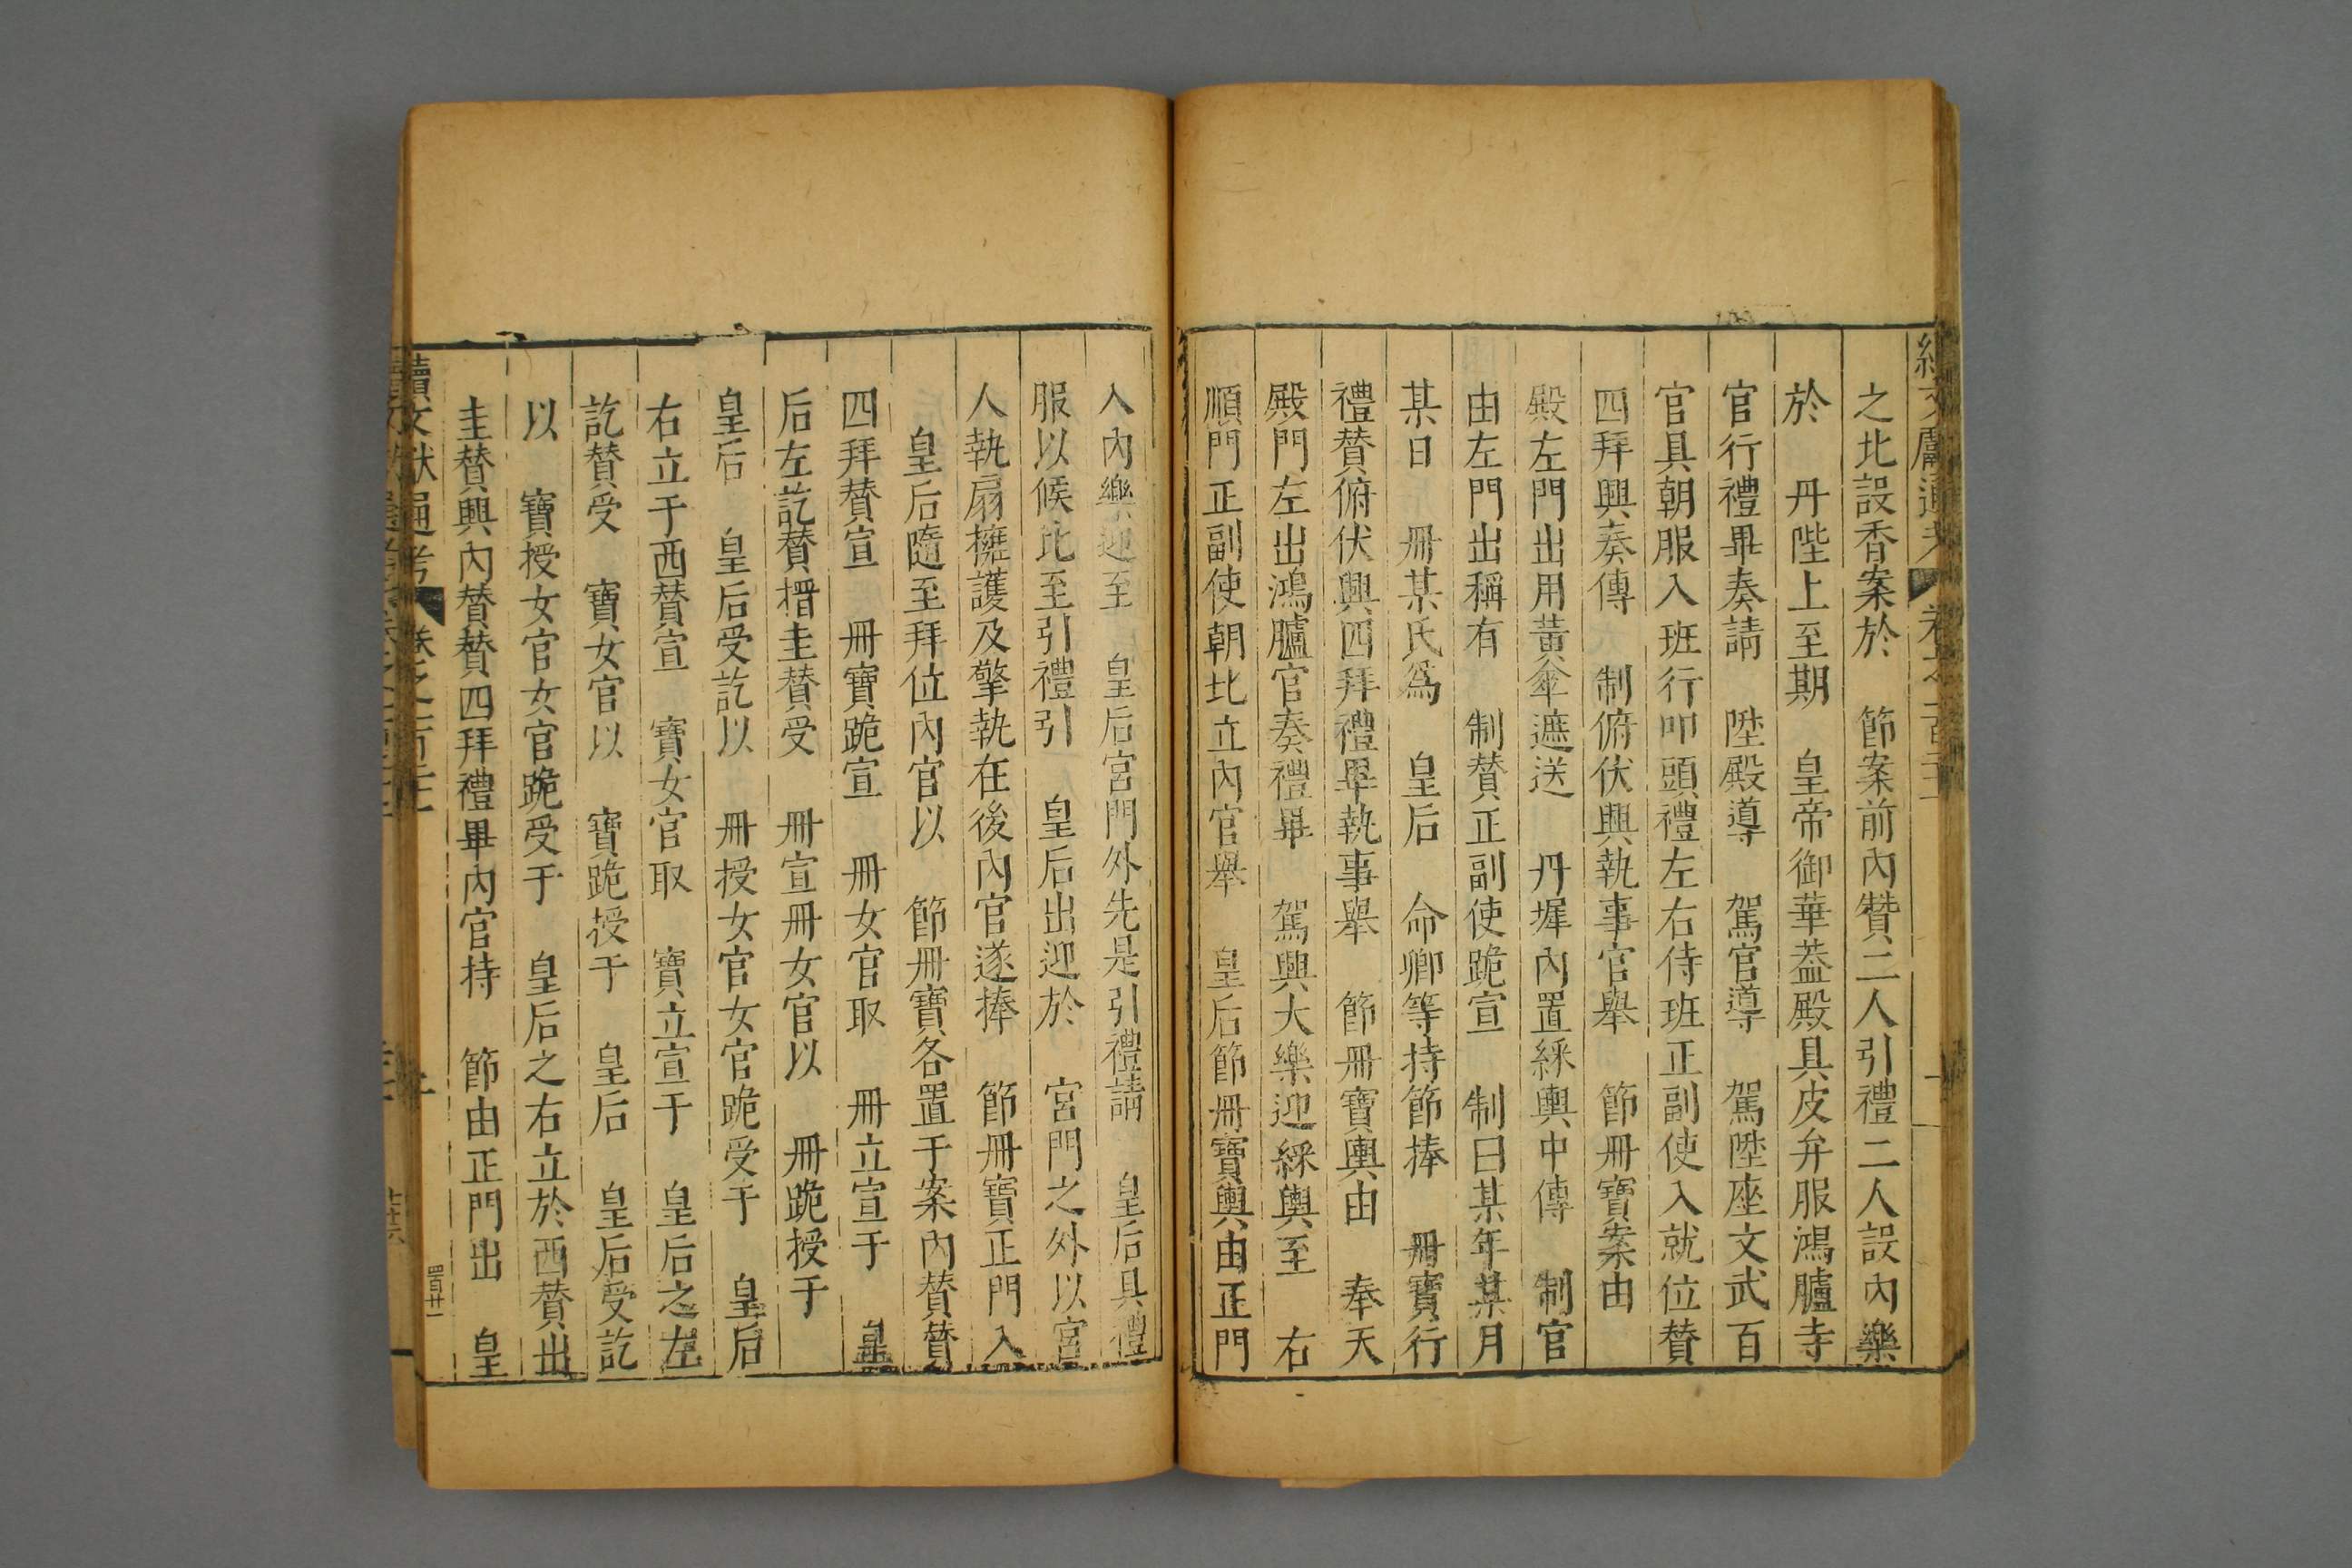 之北設香案於　節案前內贊二人引禮二人設內樂
於　丹陛上至期　皇帝御華蓋殿具皮弁服鴻臚寺
官行禮畢奏請　陞殿導　駕官導　駕陞座文武百
官具朝服入班行叩頭禮左右侍班正副使入就位賛
四拜興奏傳　制俯伏興執事官舉　節冊寶案由
殿左門出用黃傘遮送　丹墀內置綵輿中傳　制官
由左門出稱有　制賛正副使跪宣　制曰某年某月
某日　冊某氏爲　皇后　命卿等持節捧　冊寶行
禮賛俯伏興四拜禮畢執事舉　節冊寶輿由　奉天
殿門左出鴻臚官奏禮畢　駕興大樂迎綵輿至　右
順門正副使朝北立內官舉　皇后節冊寶輿由正門
入內樂迎至　皇后宮門外先是引禮請　皇后具禮
服以候比至引禮引　皇后出迎於　宮門之外以宮
人執扇擁護及擎執在後內官遂捧　節冊寶正門入
皇后隨至拜位內官以　節冊寶各置于案內賛賛
四拜賛宣　冊寶跪宣　冊女官取　冊立宣于　皇
后左訖賛搢圭賛受　冊宣冊女官以　冊跪授于
皇后　皇后受訖以　冊授女官女官跪受于　皇后
右立于西賛宣　寶女官取　寶立宣于　皇后之左
訖賛受　寶女官以　寶跪授于　皇后　皇后受訖
以　寶授女官女官跪受于　皇后之右立於西賛出
圭賛興內賛賛四拜禮畢內官持　節由正門出　皇
續文獻通考　卷之